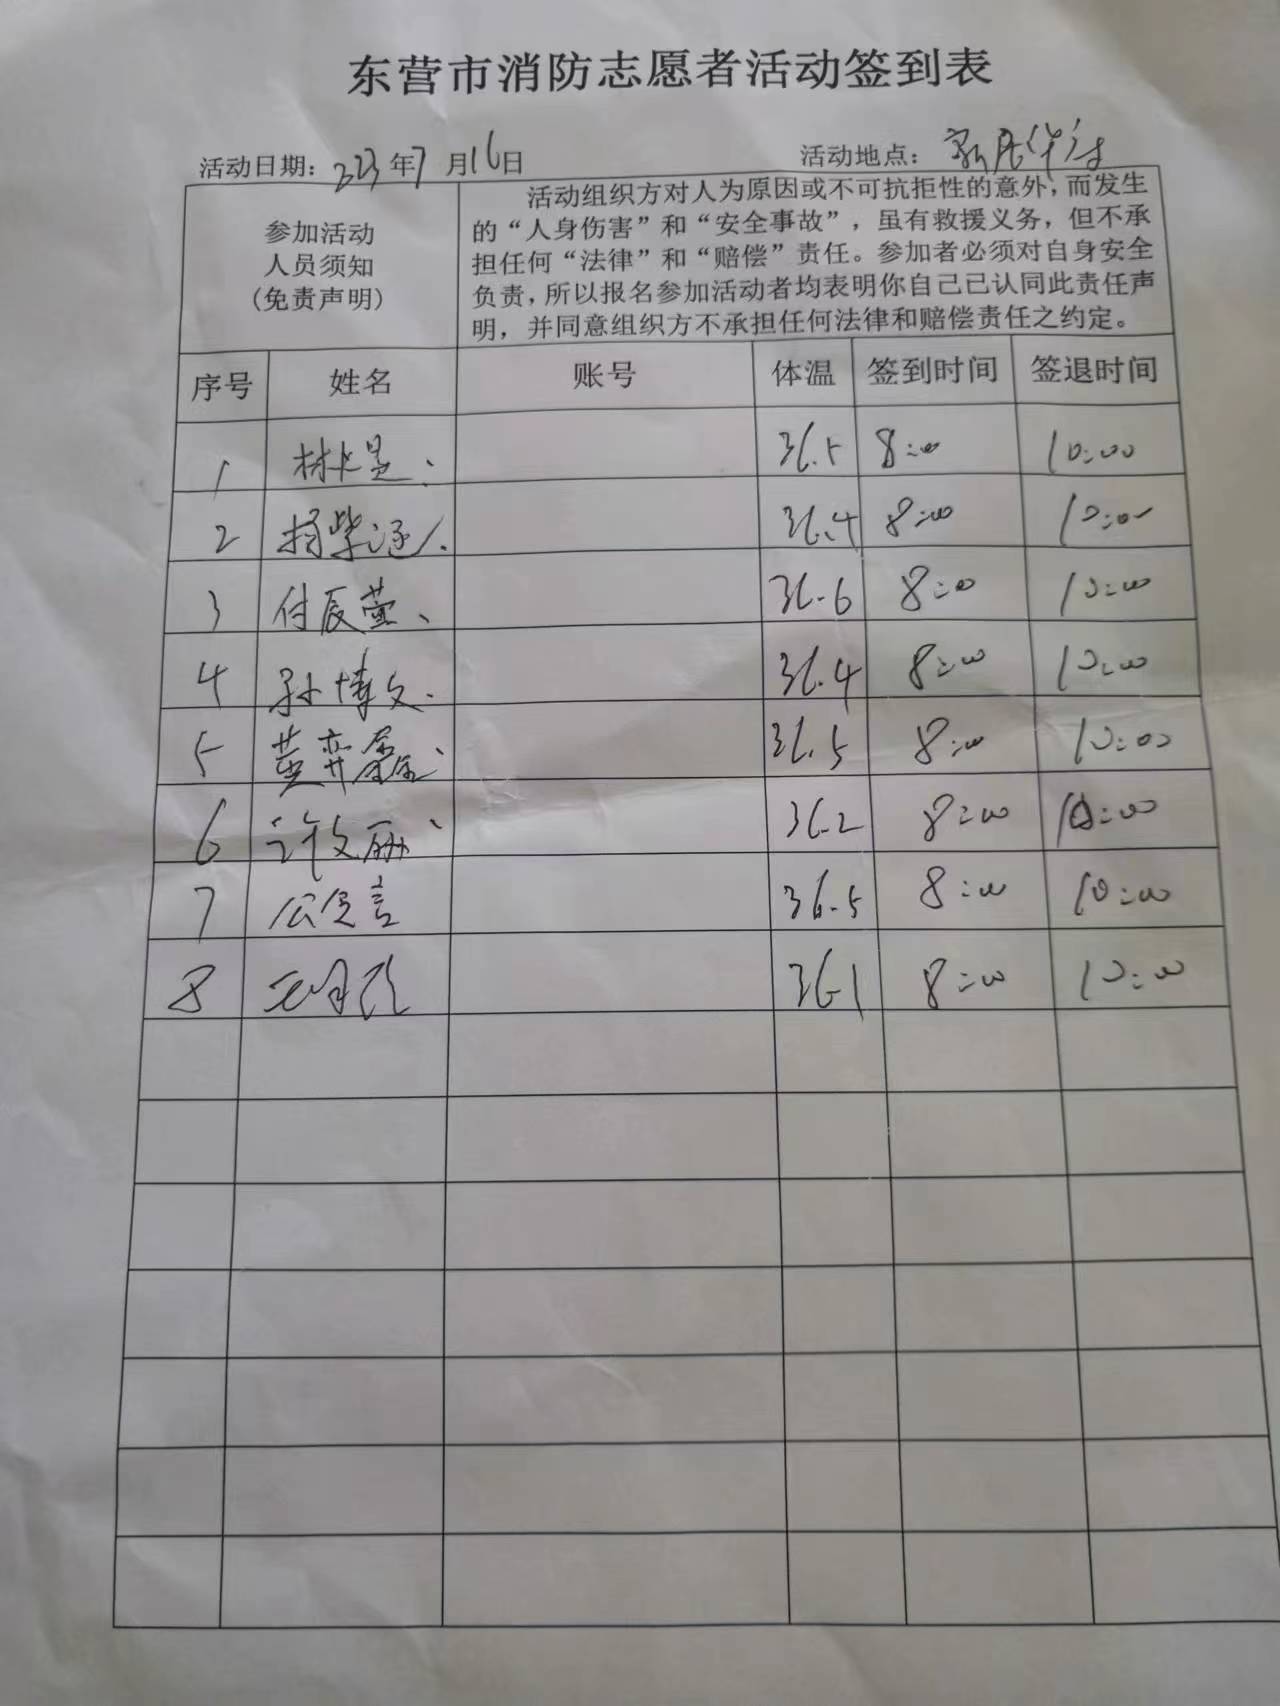 东营市消防志愿者活动签到表
活动日期：2023年7月16日 活动地点：
参加活动
人员须知
(免责声明)
活动组织方对人为原因或不可抗拒性的意外，而发生
的“人身伤害”和“安全事故”，虽有救援义务，但不承
担任何“法律”和“赔偿”责任。参加者必须对自身安全
负责，所以报名参加活动者均表明你自己已认同此责任声
明，并同意组织方不承担任何法律和赔偿责任之约定。
序号 姓名 账号 体温 签到时间 签退时间
1 36.5 8:00 10:00
2 36.4 8:00 10:00
3 付辰萱、 36.6 8:00 10:00
4 孙博文. 36.4 8:00 10:00
5 36.5 8:00 10:00
6 许文丽、 36.2 8:00 10:00
7 36.5 8:00 10:00
8 36.1 8:00 10:00